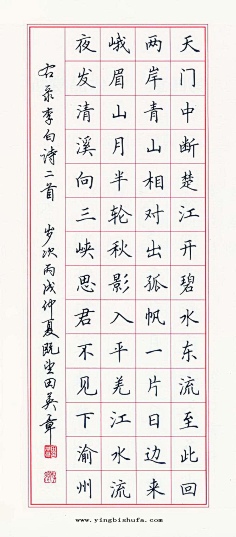 天门中断楚江开碧水东流至此回
两岸青山相对出孤帆一片日边来
峨眉山月半轮秋影入平羌江水流
夜发清溪向三峡思君不见下渝州
右录李白诗二首 岁次丙戌仲夏既望田英章
www.yingbishufa.com